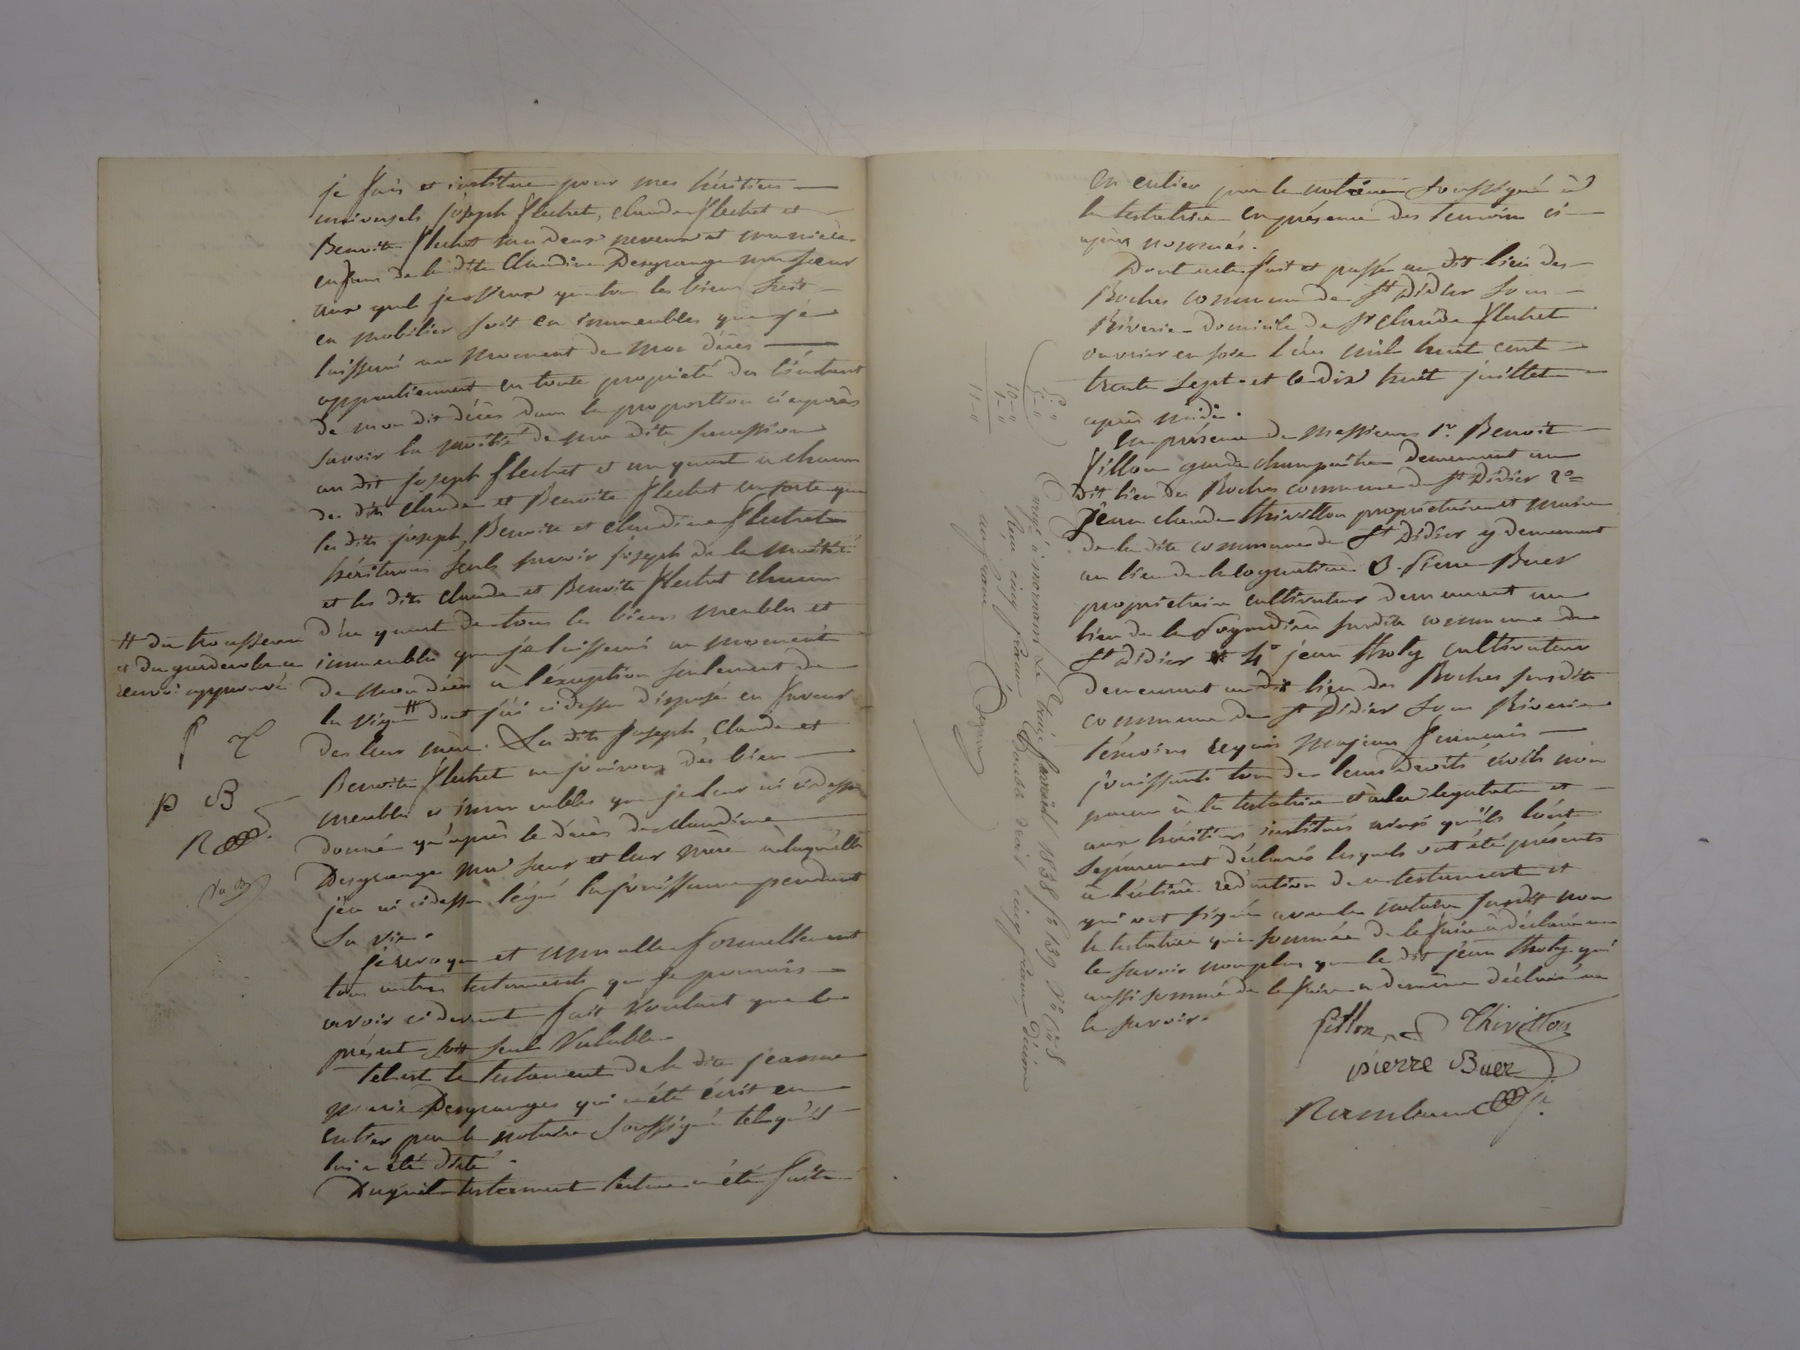 je fais et institue pour mes héritiers
universels joseph flechet, claude flechet et
Benoite flechet deux neveux et une nièce
enfans de la dite Claudine Desgrange ma sœur
aux quels je veux que tous les biens soit
en mobilier soit en immeubles que je
laisserai au moment de mon décès
appartiennent en toute propriété dès l'instant
de mon dit décès dans la proportion ci après
savoir la moitié de ma dite succession
au dit joseph flechet et un quart à chacun
des dits claude et Benoite flechet en sorte que
les dits joseph, Benoite et claudine flechet
hériteront seuls savoir joseph de la moitié
et les dits claude et Benoite flechet chacun
d'un quart de tous les biens meubles et
immeubles que je laisserai au moment
de mon décès à l'éxception seulement de
la vigne # dont j'ai ci dessus disposé en faveur
de leur mère. Les dits joseph, Claude et
Benoite flechet ne jouiront des biens
meubles et immeubles que je leur ai ci dessus
donné qu'après le décès de claudine
Desgrange ma sœur et leur mère à laquelle
j'en ai ci dessus légué la jouissance pendant
sa vie.
je revoque et annulle formellement
tous autres testaments que je pourrais
avoir ci devant fait voulant que le
présent soit seul valable
tel est le testament de la dite jeanne
marie Desgranges qui a été écrit en
entier par le notaire soussigné tel qu'il
lui a été dicté.
Duquel testament lecture a été faite
# du trousseau
et du garderobe
renvoi approuvé
f
p B
R
en entier par le notaire soussigné à
la testatrice en présence des témoins ci
après nommés.
Dont acte fait et passé au dit lieu des
Roches commune de St Didier sous
Riverie domicile de Sr claude flechet
ouvrier en soie l'an mil huit cent
trente sept et le dix huit juillet
après midi.
En présence de messieurs 1º. Benoit
fillon garde champêtre demeurant au
dit lieu des Roches commune de St Didier 2º
jean claude thivillon propriétaire et maire
de la dite commune de St Didier y demeurant
au lieu de 3. Pierre Buer
propriétaire cultivateur demeurant au
lieu de la susdite commune de
St Didier et 4º jean tholy cultivateur
demeurant au dit lieu des Roches susdite
commune de St Didier sous Riverie
témoins requis majeurs français
jouissants tous de leurs droits civils non
parens à la testatrice et à la legataire et
aux héritiers institués ainsi qu'ils l'ont
séparément déclaré lesquels ont été présents
à l'entière rédaction du testament et
qui ont signé avec le notaire susdit non
la testatrice qui sommée de le faire a déclaré ne
le savoir non plus que le dit jean tholy qui
aussi sommé de le faire a de même déclaré ne
le savoir.
fillon Thivillon
pierre Buer
Rambaud
Enregé à mornant le treize 1838 fº 139 Vº
Reçu cinq francs décime
un franc
5 "
5 "
10 "
1 "
11 "